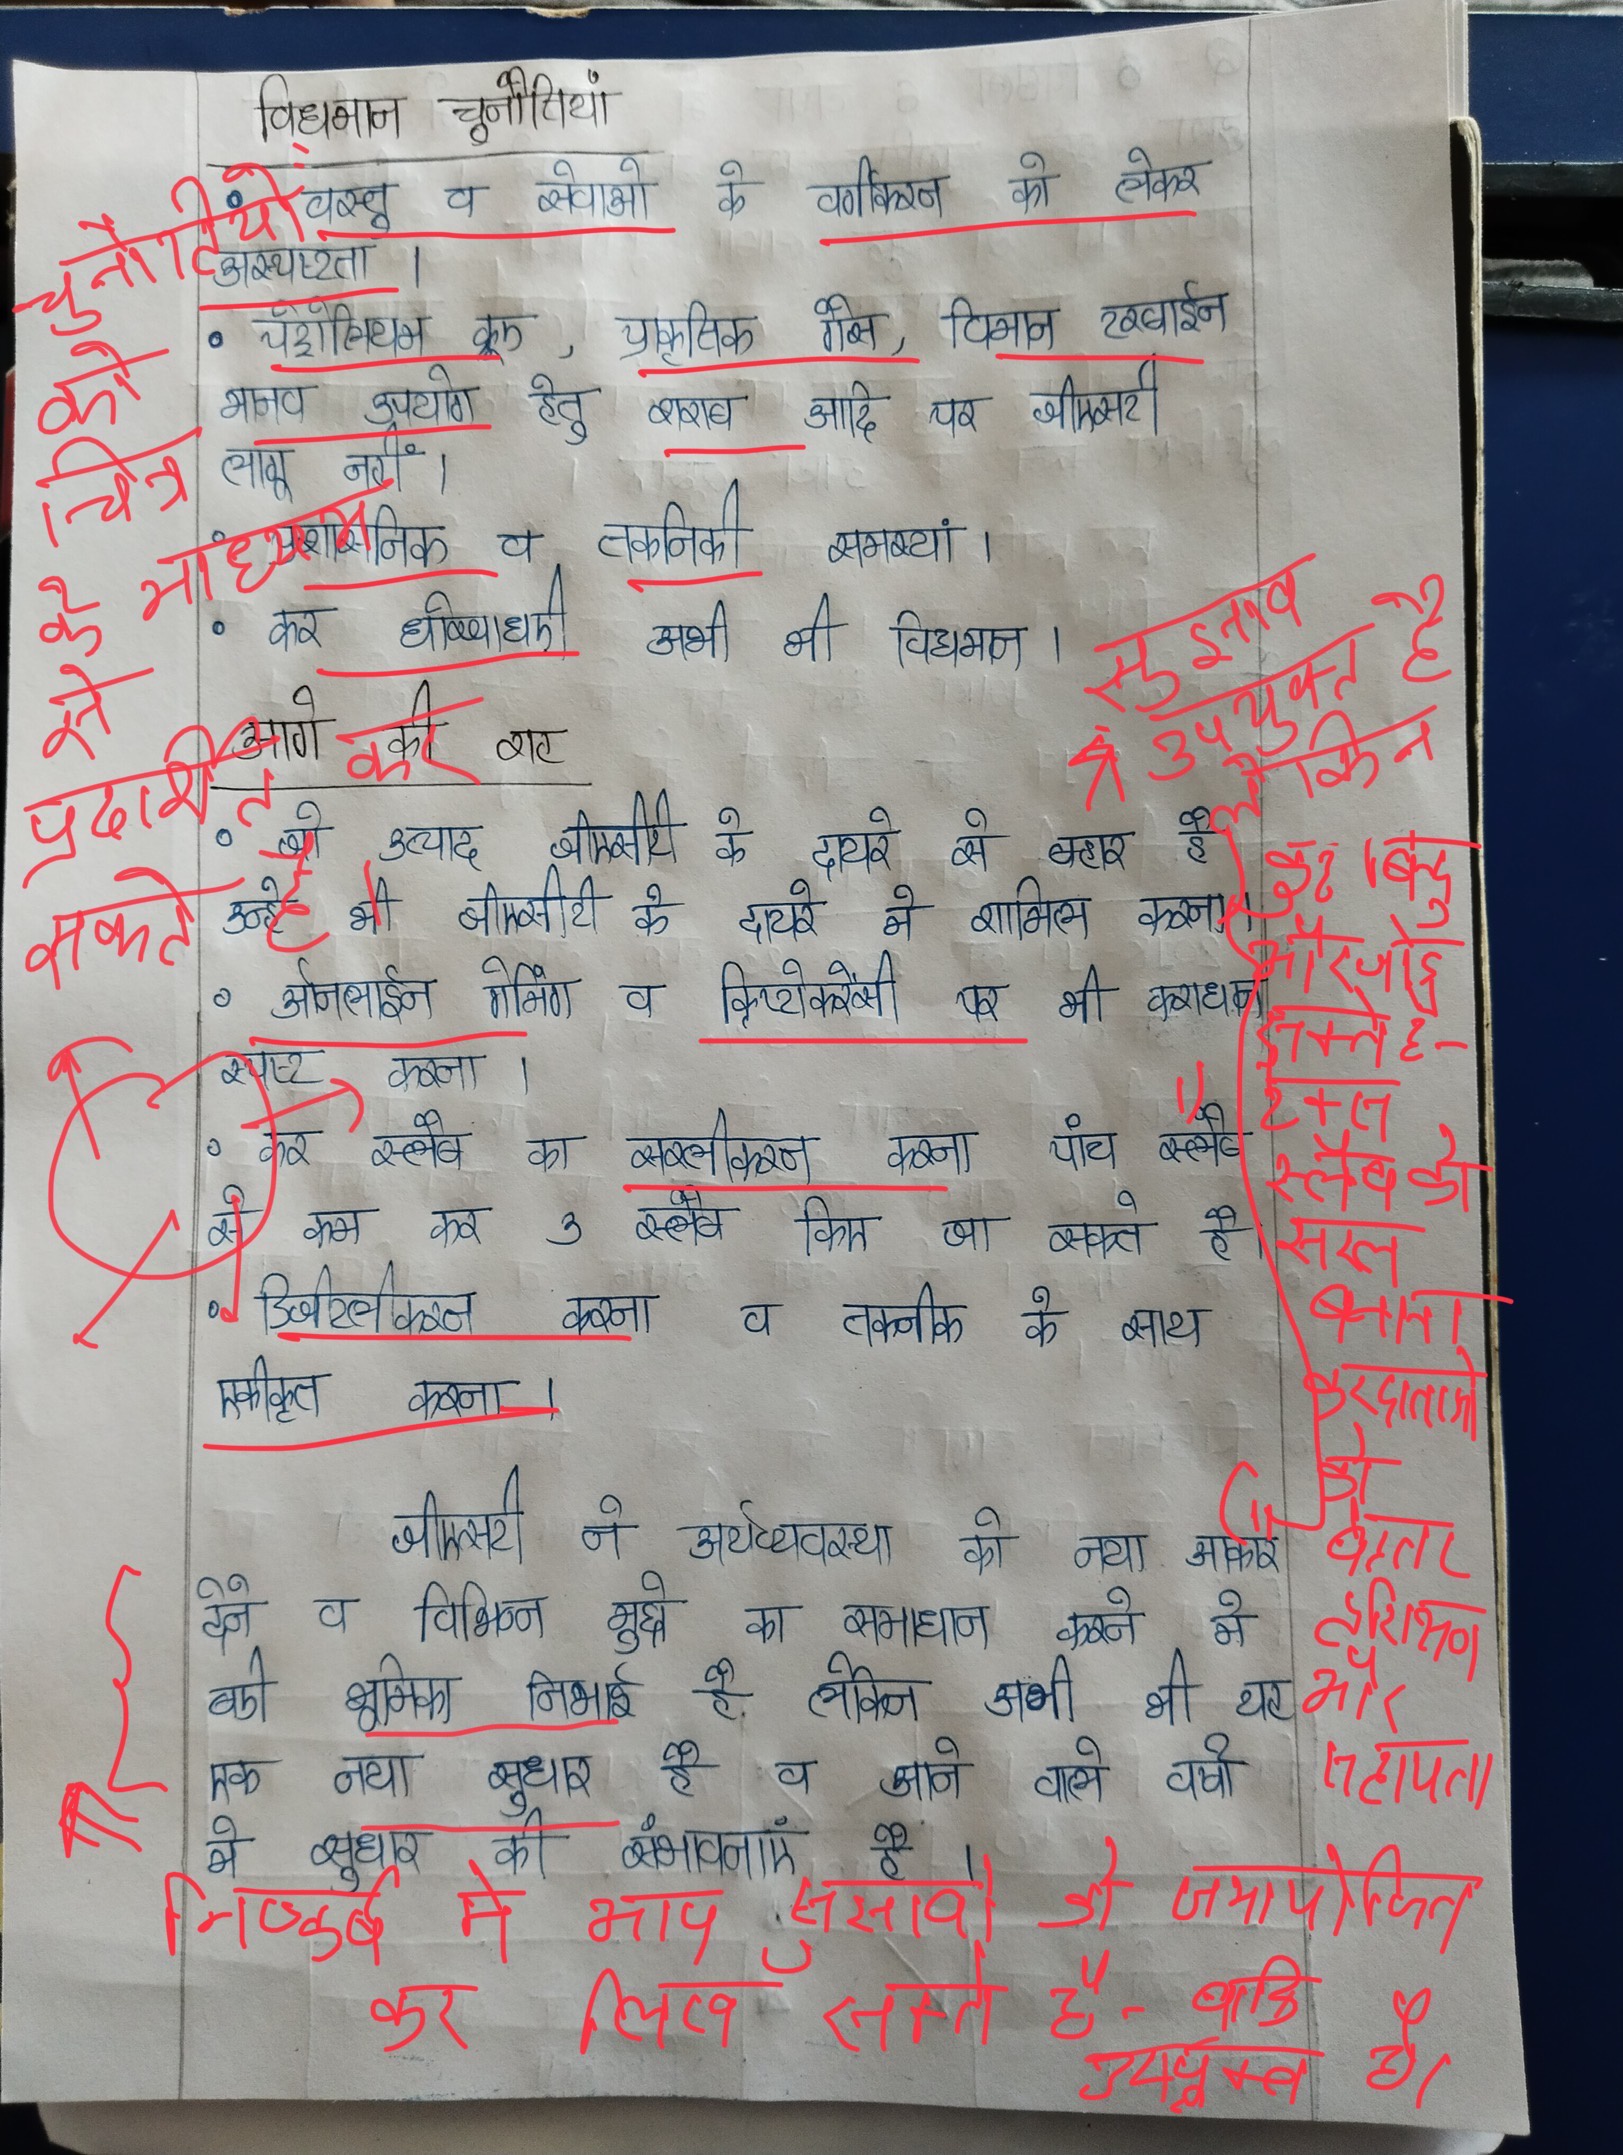 विद्यमान चुनौतियां
• वस्तु व सेवाओ के वर्गीकरन को लेकर
अस्पष्टता ।
• पेट्रोलियम क्रूड, प्राकृतिक गैस, विमान टरबाईन
मानव उपयोग हेतु शराब आदि पर जीएसटी
लागू नहीं ।
• प्रशासनिक व तकनिकी समस्यां ।
• कर धोखाधडी अभी भी विद्यमान ।
आगे की राह
• जो उत्पाद जीएसीटी के दायरे से बहार है
उन्हे भी जीएसीटी के दायरे मे शामिल करना ।
• ऑनलाईन गेमिंग व क्रिप्टोकरेंसी पर भी कराधान
स्पष्ट करना ।
• कर स्लैब का सरलीकरन करना पांच स्लैब
से कम कर 3 स्लैब किए जा सकते है ।
• डिजीटलीकरन करना व तकनीक के साथ
एकीकृत करना ।
जीएसटी ने अर्थव्यवस्था को नया आकार
देने व विभिन्न मुद्दो का समाधान करने मे
बडी भूमिका निभाई है लेकिन अभी भी यह
एक नया सुधार है व आने वाले वर्षो
मे सुधार की संभावनाएं है ।
चुनौतियों
को
चित्र
के माध्यम
से
प्रदर्शित कर
सकते हैं।
सुझाव
उपयुक्त है
लेकिन
कुछ बिन्दु
और जोड़
सकते है -
टैक्स
स्लैब को
सरल
बनाना
करदाताओ
को
बेहतर
प्रशिक्षण
और
सहायता
निष्कर्ष मे आप सुझावो को समायोजित
कर लिख सकते हैं - बाकि
उपयुक्त है।